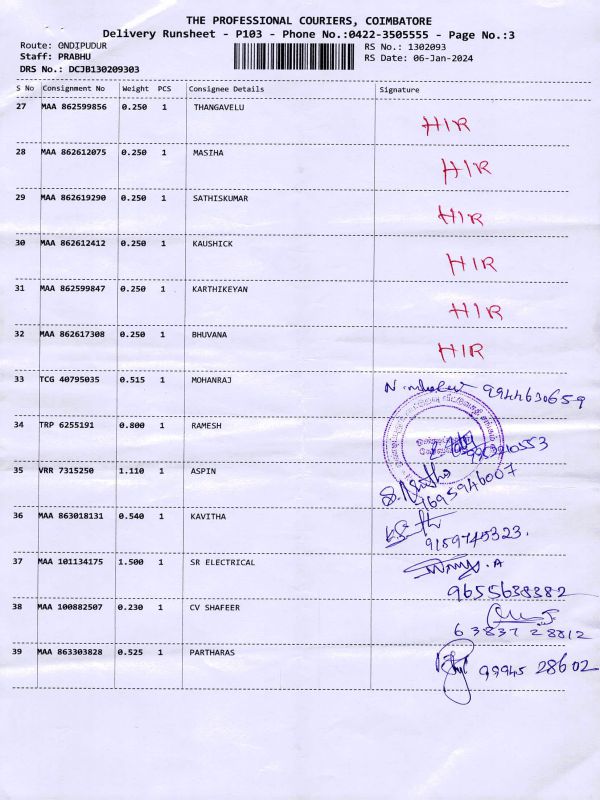 THE PROFESSIONAL COURIERS, COIMBATORE
Delivery Runsheet - P103 - Phone No.:0422-3505555 - Page No.:3
Route: ONDIPUDUR RS No.: 1302093
Staff: PRABHU RS Date: 06-Jan-2024
DRS No.: DCJB130209303
S No Consignment No Weight PCS Consignee Details Signature
27 MAA 862599856 0.250 1 THANGAVELU HIR
28 MAA 862612075 0.250 1 MASIHA HIR
29 MAA 862619290 0.250 1 SATHISKUMAR HIR
30 MAA 862612412 0.250 1 KAUSHICK HIR
31 MAA 862599847 0.250 1 KARTHIKEYAN HIR
32 MAA 862617308 0.250 1 BHUVANA HIR
33 TCG 40795035 0.515 1 MOHANRAJ 9944630659
34 TRP 6255191 0.800 1 RAMESH
35 VRR 7315250 1.110 1 ASPIN 9695946007
36 MAA 863018131 0.540 1 KAVITHA 9159745323.
37 MAA 101134175 1.500 1 SR ELECTRICAL 9655638382
38 MAA 100882507 0.230 1 CV SHAFEER 63837 28812
39 MAA 863303828 0.525 1 PARTHARAS 99945 28602